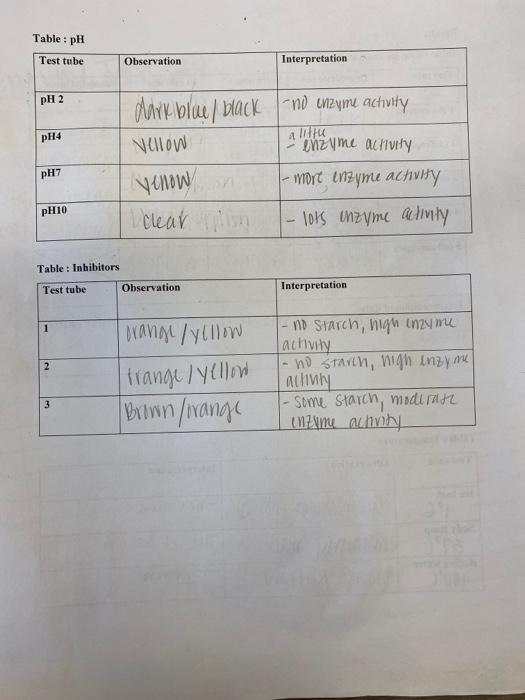 Table : pH
Test tube Observation Interpretation
pH 2 dark blue / black - no enzyme activity
pH4 yellow a little - enzyme activity
pH7 yellow - more enzyme activity
pH10 clear - lots enzyme activity
Table : Inhibitors
Test tube Observation Interpretation
1 orange / yellow - no starch, high enzyme
activity
2 orange / yellow - no starch, high enzyme
activity
3 Brown / orange - some starch, moderate
enzyme activity